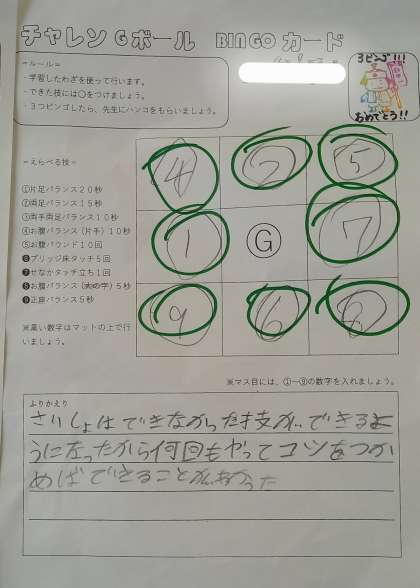 チャレンGボール BINGOカード
3ビンゴ!!!
おめでとう!!
=ルール=
・学習したわざを使って行います。
・できた技には○をつけましょう。
・3つビンゴしたら、先生にハンコをもらいましょう。
=えらべる技=
①片足バランス20秒
②両足バランス15秒
③両手両足バランス10秒
④お腹バランス(片手)10秒
⑤お腹バウンド10回
❻ブリッジ床タッチ5回
❼せなかタッチ立ち1回
❽お腹バランス(大の字)5秒
❾正座バランス5秒
※黒い数字はマットの上で行
いましょう。
4 2 5
1 G 7
9 6 8
※マス目には、①~⑨の数字を入れましょう。
ふりかえり
さいしょはできなかった技ができるよ
うになったから何回もやってコツをつか
めばできることがわかった